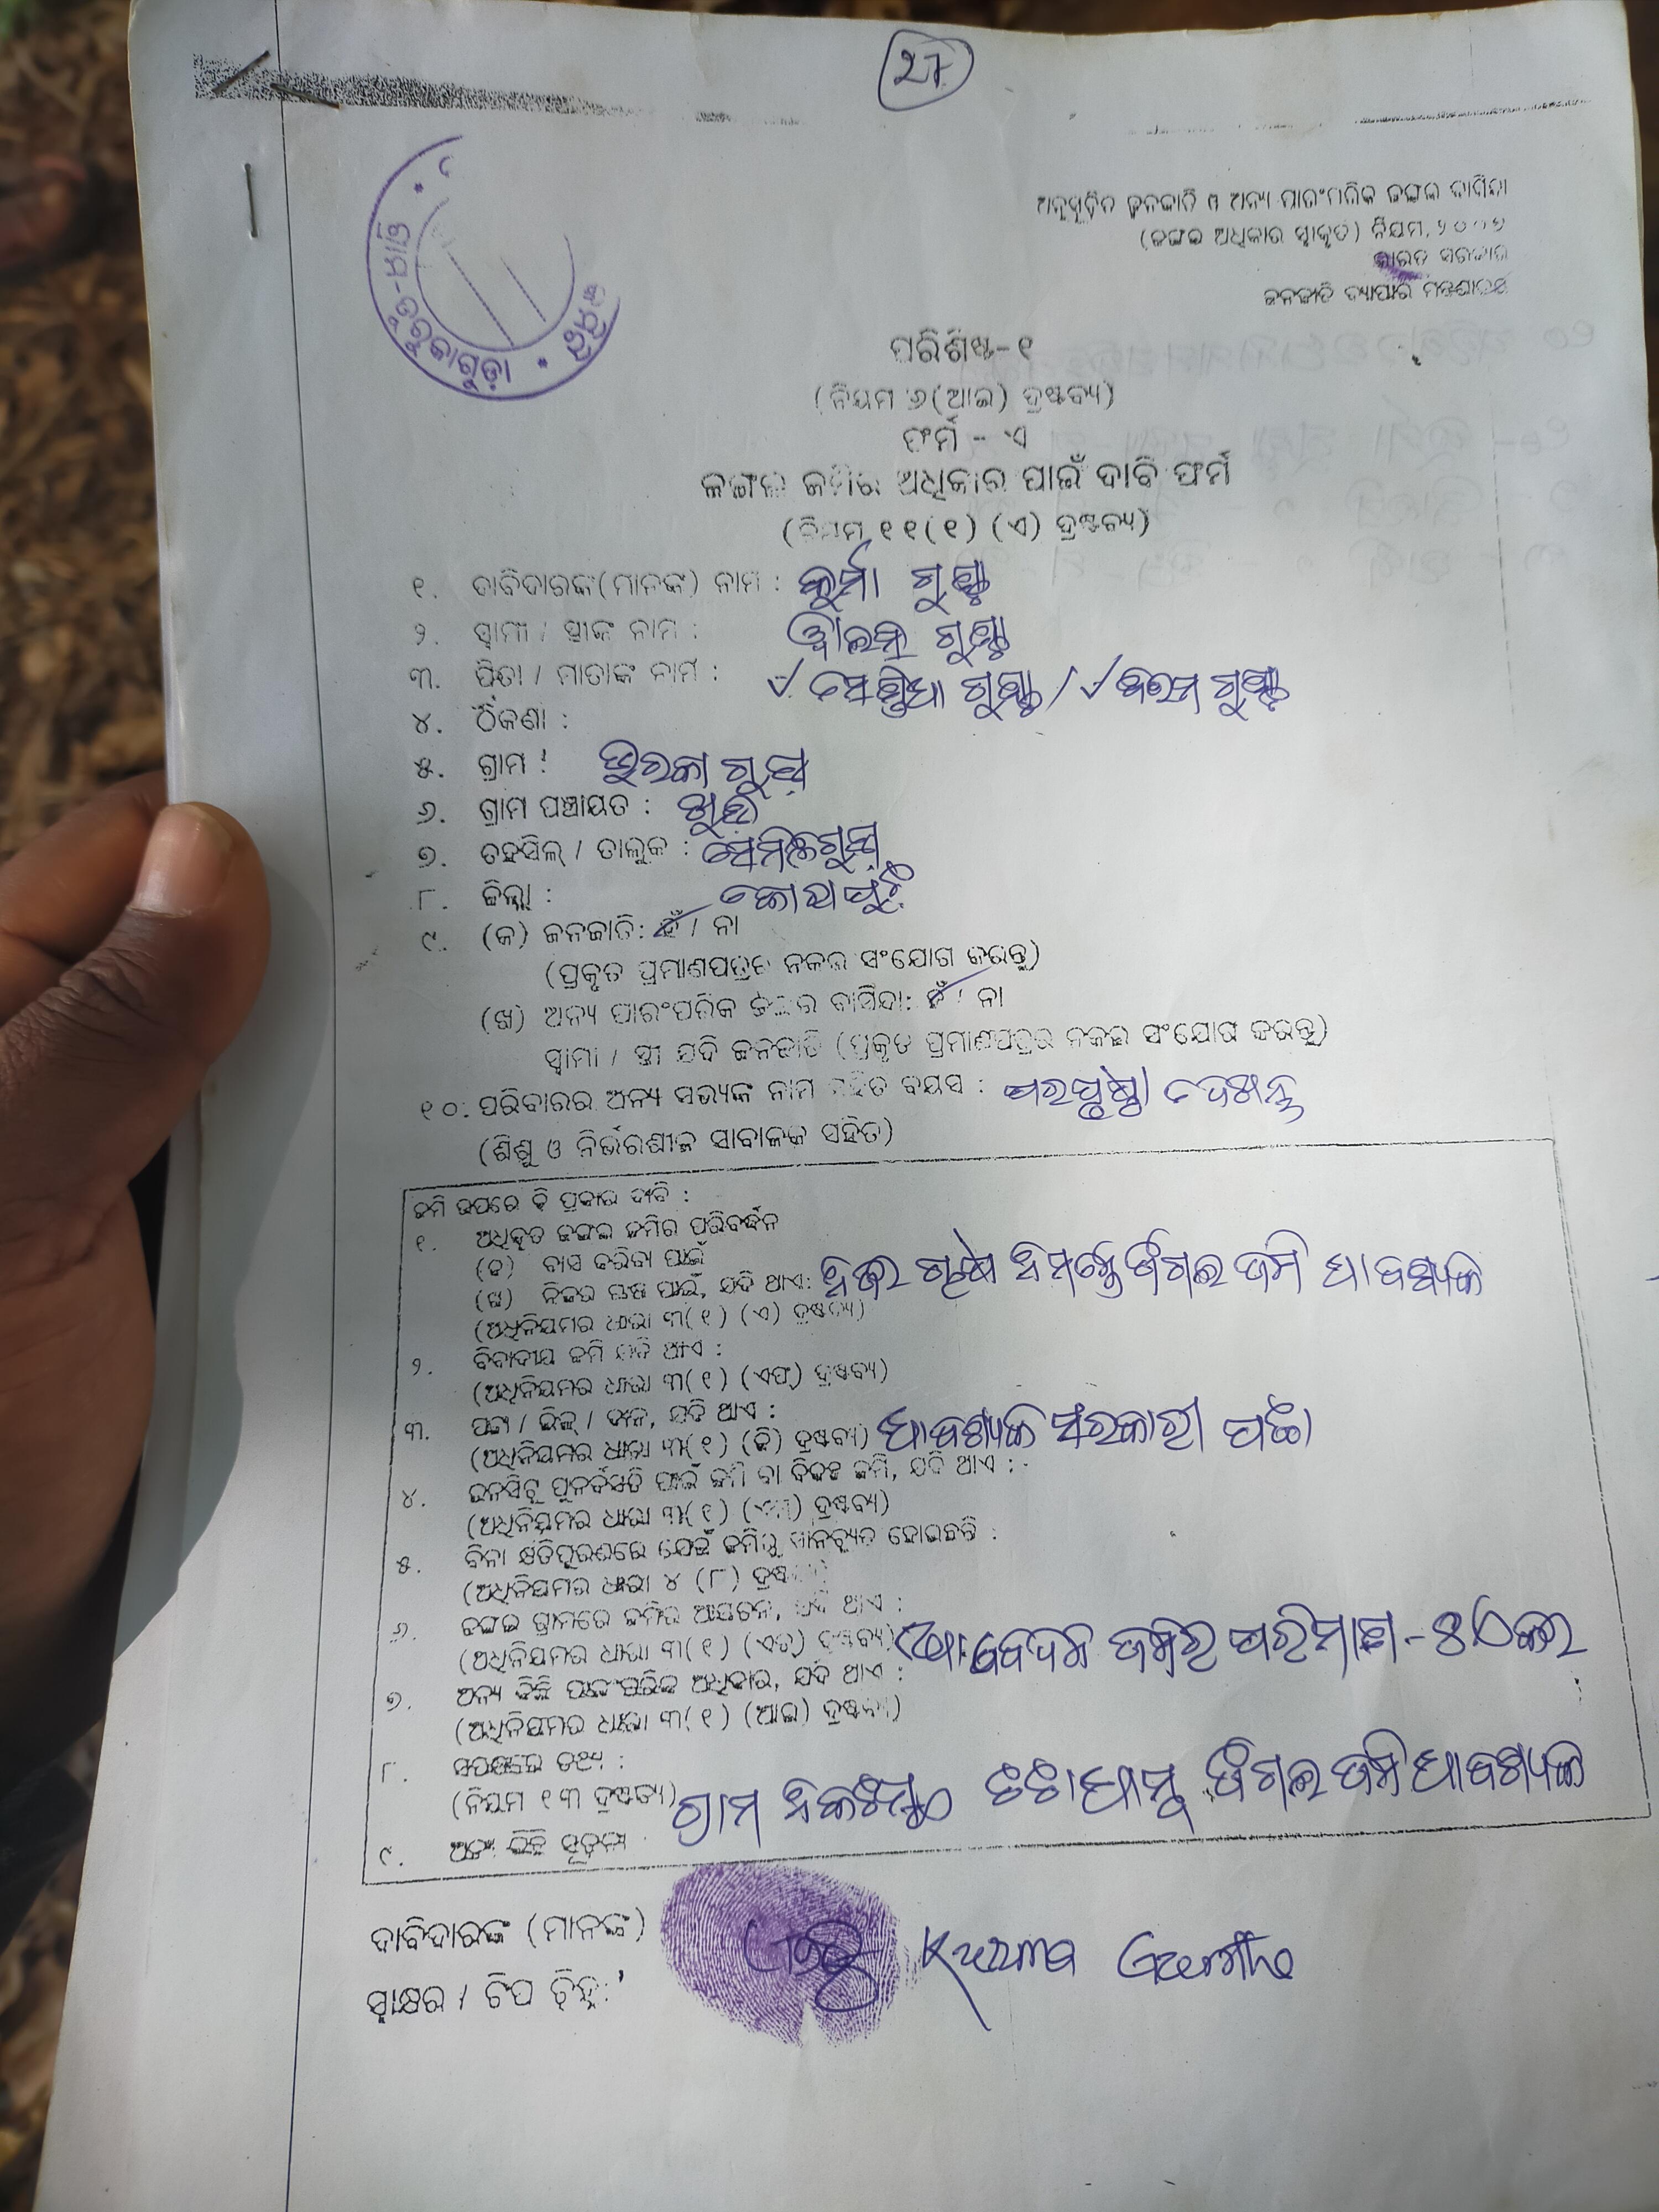 27
ଅନୁସୂଚିତ ଜନଜାତି ଓ ଅନ୍ୟ ପାରଂପରିକ ଜଙ୍ଗଲ ବାସିନ୍ଦା
(ଜଙ୍ଗଲ ଅଧିକାର ସ୍ୱୀକୃତ) ନିୟମ, ୨୦୦୭
ଭାରତ ସରକାର
ଜନଜାତି ବ୍ୟାପାର ମନ୍ତ୍ରଣାଳୟ
ପରିଶିଷ୍ଟ-୧
(ନିୟମ ୬(ଆଇ) ଦ୍ରଷ୍ଟବ୍ୟ)
ଫର୍ମ - ଏ
ଜଙ୍ଗଲ ଜମିର ଅଧିକାର ପାଇଁ ଦାବି ଫର୍ମ
(ନିୟମ ୧୧(୧) (ଏ) ଦ୍ରଷ୍ଟବ୍ୟ)
୧. ଦାବିଦାରଙ୍କ(ମାନଙ୍କ) ନାମ : କୁର୍ମା ଗୁଣ୍ଠା
୨. ସ୍ୱାମୀ / ସ୍ତ୍ରୀଙ୍କ ନାମ : ଗୁଣ୍ଠା
୩. ପିତା / ମାତାଙ୍କ ନାମ : ଗୁଣ୍ଠା / ଗୁଣ୍ଠା
୪. ଠିକଣା :
୫. ଗ୍ରାମ :
୬. ଗ୍ରାମ ପଞ୍ଚାୟତ :
୭. ତହସିଲ୍ / ତାଲୁକ : ସେମିଳିଗୁଡ଼ା
୮. ଜିଲ୍ଲା : କୋରାପୁଟ
୯. (କ) ଜନଜାତି: ହଁ / ନା
(ପ୍ରକୃତ ପ୍ରମାଣପତ୍ରର ନକଲ ସଂଯୋଗ କରନ୍ତୁ)
(ଖ) ଅନ୍ୟ ପାରଂପରିକ ଜଙ୍ଗଲ ବାସିନ୍ଦା: ହଁ / ନା
ସ୍ୱାମୀ / ସ୍ତ୍ରୀ ଯଦି ଜନଜାତି (ପ୍ରକୃତ ପ୍ରମାଣପତ୍ରର ନକଲ ସଂଯୋଗ କରନ୍ତୁ)
୧୦. ପରିବାରର ଅନ୍ୟ ସଭ୍ୟଙ୍କ ନାମ ସହିତ ବୟସ : ପରପୃଷ୍ଠା ଦେଖନ୍ତୁ
(ଶିଶୁ ଓ ନିର୍ଭରଶୀଳ ସାବାଳକ ସହିତ)
ଜମି ଉପରେ କି ପ୍ରକାର ଦାବି :
୧. ଅଧିକୃତ ଜଙ୍ଗଲ ଜମିର ପରିବର୍ଦ୍ଧନ
(କ) ବାସ କରିବା ପାଇଁ
(ଖ) ନିଜର ଚାଷ ପାଇଁ, ଯଦି ଥାଏ: ନିମନ୍ତେ ଜଂଗଲ ଜମି ଆବଶ୍ୟକ
(ଅଧିନିୟମର ଧାରା ୩(୧) (ଏ) ଦ୍ରଷ୍ଟବ୍ୟ)
୨. ବିବାଦୀୟ ଜମି ଯଦି ଥାଏ :
(ଅଧିନିୟମର ଧାରା ୩(୧) (ଏଫ୍) ଦ୍ରଷ୍ଟବ୍ୟ)
୩. ପଟ୍ଟା / ଲିଜ୍ / ଦାନ, ଯଦି ଥାଏ :
(ଅଧିନିୟମର ଧାରା ୩(୧) (ଜି) ଦ୍ରଷ୍ଟବ୍ୟ) ଆବଶ୍ୟକ ସରକାରୀ ପଟ୍ଟା
୪. ଇନସିଟୁ ପୁନର୍ବସତି ପାଇଁ ଜମି ବା ବିକଳ୍ପ ଜମି, ଯଦି ଥାଏ :
(ଅଧିନିୟମର ଧାରା ୩(୧) (ଏମ୍) ଦ୍ରଷ୍ଟବ୍ୟ)
୫. ବିନା କ୍ଷତିପୂରଣରେ ଯେଉଁ ଜମିରୁ ସ୍ଥାନଚ୍ୟୁତ ହୋଇଛନ୍ତି :
(ଅଧିନିୟମର ଧାରା ୪ (୮) ଦ୍ରଷ୍ଟବ୍ୟ)
୬. ଜଙ୍ଗଲ ଗ୍ରାମରେ ଜମିର ଆୟତନ, ଯଦି ଥାଏ :
(ଅଧିନିୟମର ଧାରା ୩(୧) (ଏଚ୍) ଦ୍ରଷ୍ଟବ୍ୟ) ଜମିର ପରିମାଣ -
୭. ଅନ୍ୟ କିଛି ପାରଂପରିକ ଅଧିକାର, ଯଦି ଥାଏ :
(ଅଧିନିୟମର ଧାରା ୩(୧) (ଆଇ) ଦ୍ରଷ୍ଟବ୍ୟ)
୮. ସପକ୍ଷରେ ତଥ୍ୟ :
(ନିୟମ ୧୩ ଦ୍ରଷ୍ଟବ୍ୟ) ଗ୍ରାମ ଜଂଗଲ ଜମି ଆବଶ୍ୟକ
୯. ଅନ୍ୟ କିଛି ସୂଚନା
ଦାବିଦାରଙ୍କ (ମାନଙ୍କ)
ସ୍ୱାକ୍ଷର / ଟିପ ଚିହ୍ନ: Kurma Guntha